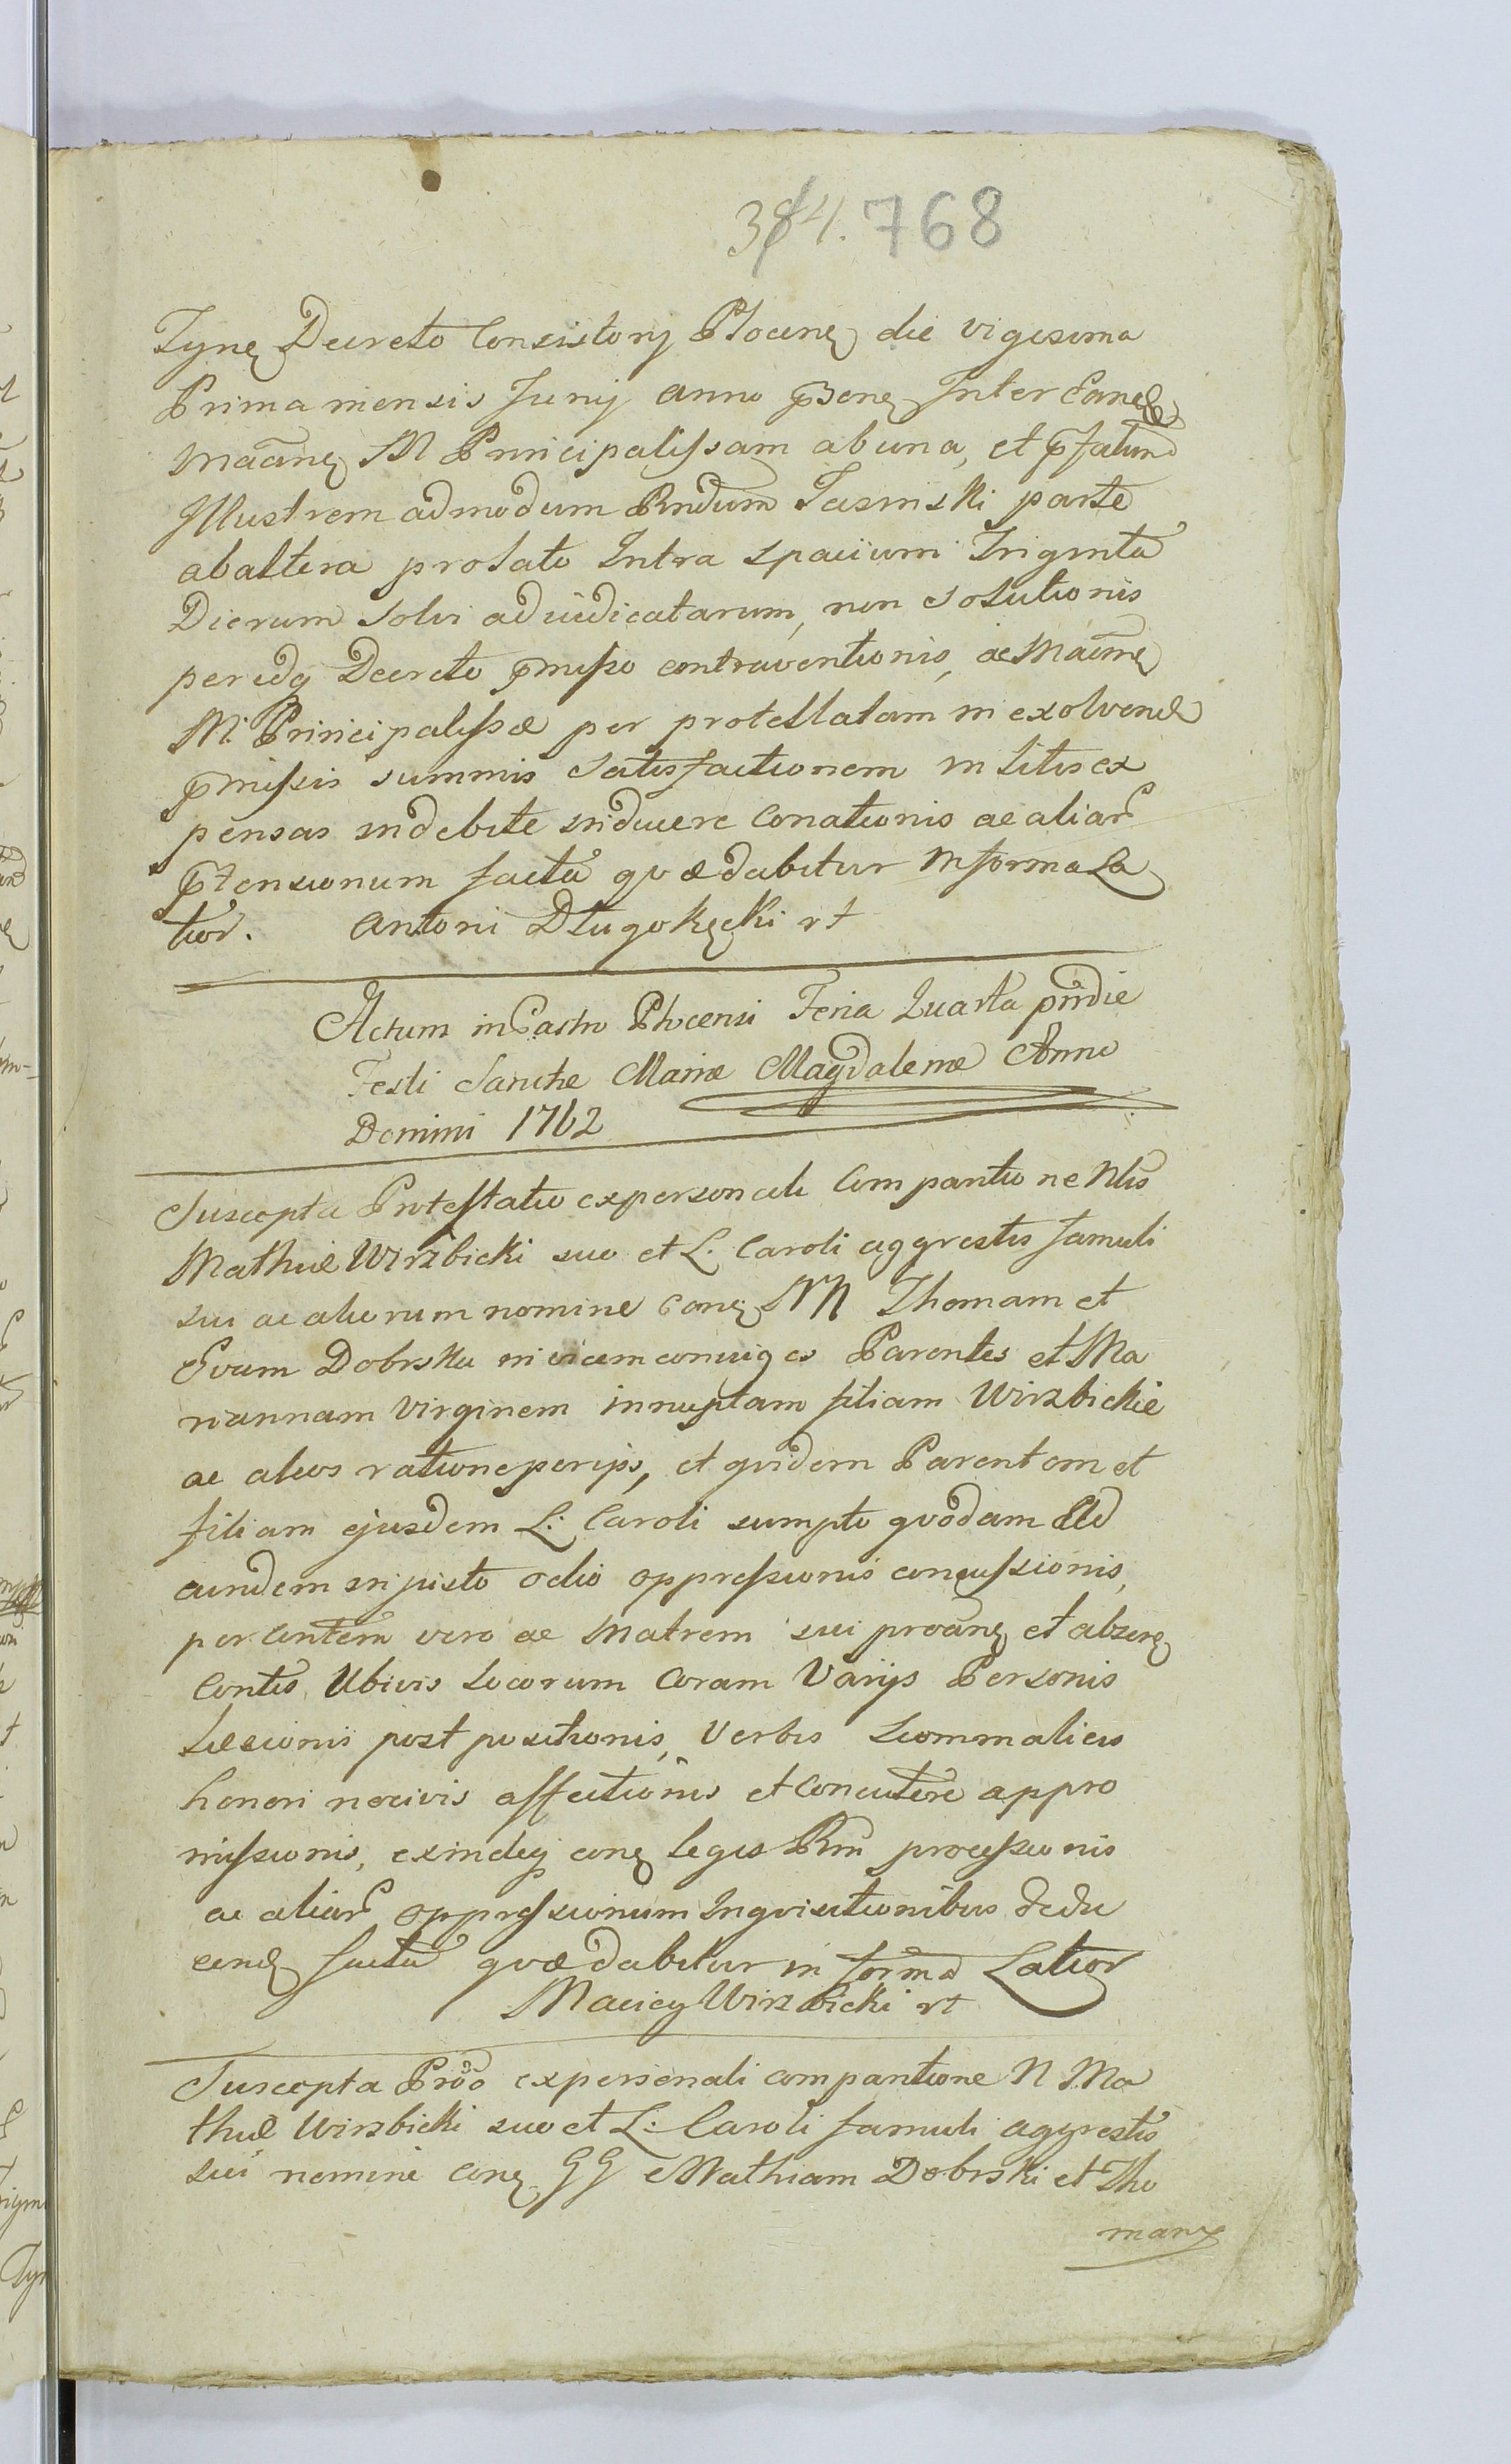 384. 768
Tynę Decreto Consistorij Plocenę die vigesima
Prima mensis Junij anno p̄senę Inter Eandę
Macāne M Principalissam ab una, et p̄fatum
Illustrem admodum Rndum Jasinski parte
ab altera prolato Intra spacium Triginta
Dierum solvi adiudicatarum, non solutionis
per idq Decreto p̄misso contraventionis, ac Macāne
M. Principalissæ per protestatam in exolvendę
p̄missis summis satisfactionem in litis ex
pensas indebite inducere conationis ac aliar
p̄tensionum facta quæ dabitur in forma La
tior. Antoni Długokęcki rt
Actum in Castro Plocensi Feria Quarta pridie
Festi Sanctæ Mariæ Magdalenæ Anno
Domini 1762
Suscepta Protestatio ex personali Comparitione Nlis
Mathiæ Wirzbicki suo et L. Caroli aggrestis famuli
sui ac aliorum nomine conę NN Thomam et
Evam Dobrskie invicem coniuges Parentes et Ma
riannam Virginem innuptam filiam Wirzbickie
ac alios ratione per ips, et quidem Parentem et
filiam ejusdem L: Caroli sumpto quodam Ad
eundem injusto odio oppressionis concussionis,
parentem vero ac Matrem sui proanę et absenę
Contis Ubivis locorum Coram Varijs Personis
Læsionis post positionis, Verbis scommaticis
honori nocivis affectionis et concutere appro
missionis, exindeq conę leges Rni processionis
ac aliar oppressionum Inquisitionibus dedu
cendę facta quæ dabitur in forma Latior
Maciey Wirzbicki rt
Suscepta Prōō ex personali comparitione N Ma
thiæ Wirzbicki suo et L: Caroli famuli aggrestis
sui nomine conę GG Mathiam Dobrski et Tho
mam